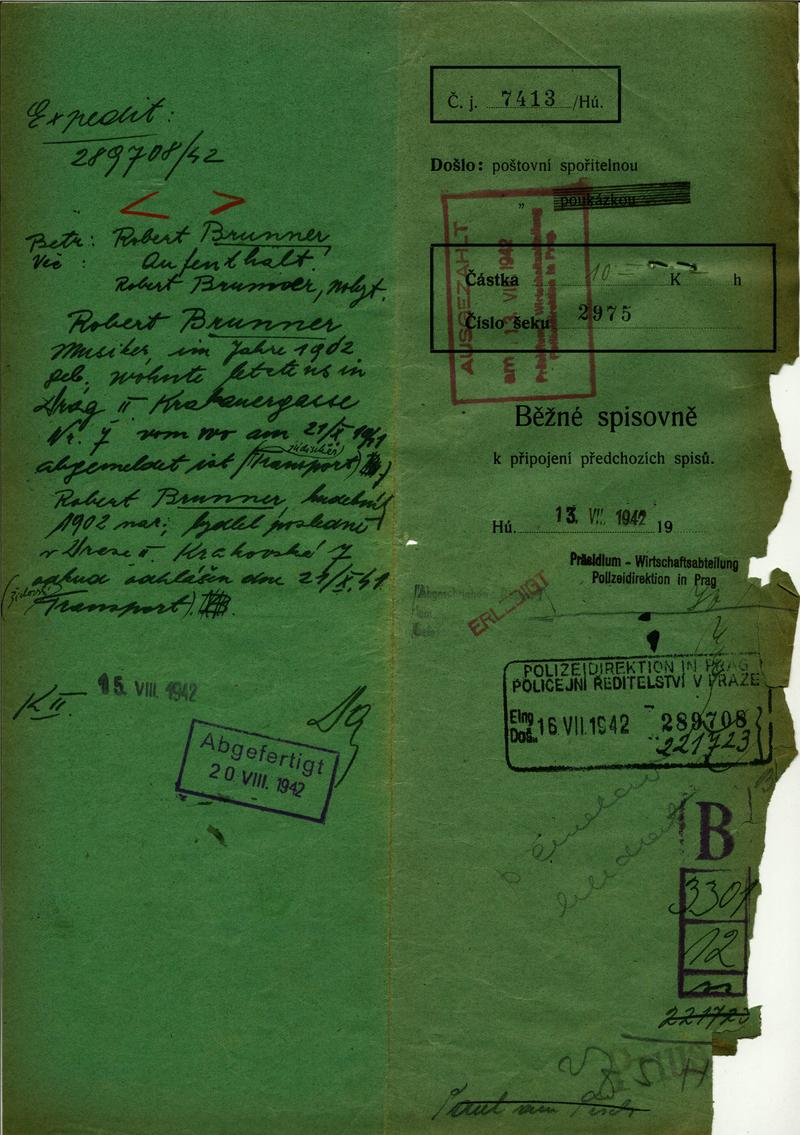 Expedit:
289708/42
< >
Betr: Robert Brunner
Věc : Aufenthalt.
Robert Brunner, pobyt.
Robert Brunner
Musiker, im Jahre 1902
geb., wohnte letztens in
Prag II Krakauergasse
Nr. 7 von wo am 21/X 1941
abgemeldet ist (jüdischer Transport)
Robert Brunner, hudebník
1902 nar., bydlel posledně
v Praze II. Krakovská 7
odkud odhlášen dne 21/X.41
(židovský Transport).
K II.
15. VIII. 1942
Abgefertigt
20 VIII. 1942
Č. j. 7413 /Hú.
Došlo: poštovní spořitelnou
„ poukázkou
AUSGEZAHLT
am 13. VII. 1942
Präsidium-Wirtschaftsabteilung
Polizeidirektion in Prag
Částka 10 — K h
Číslo šeku 2975
Běžné spisovně
k připojení předchozích spisů.
Hú. 13. VII. 1942 19
Präsidium - Wirtschaftsabteilung
Polizeidirektion in Prag
ERLEDIGT
POLIZEIDIREKTION IN PRAG
POLICEJNÍ ŘEDITELSTVÍ V PRAZE
Eing. 16 VII. 1942 289708
Doš. 221723
B
3301
12
221723